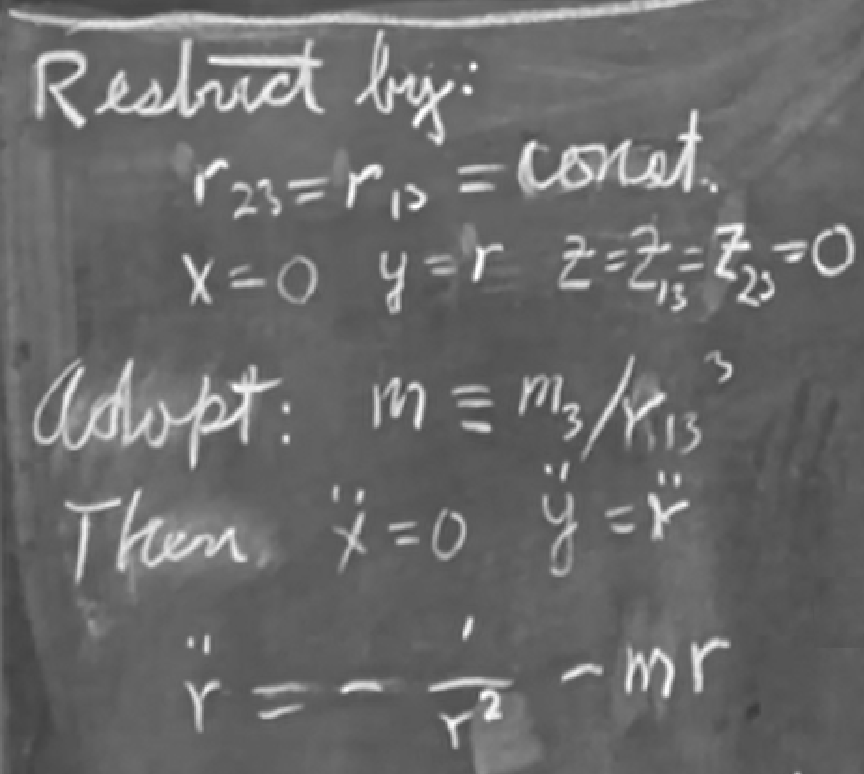 Restrict by:
r₂₃ = r₁₃ = const.
x = 0 y = r z = z₁₃ = z₂₃ = 0
Adopt: m ≡ m₃/r₁₃³
Then, ẍ = 0 ÿ = r̈
r̈ = - 1/r² - mr